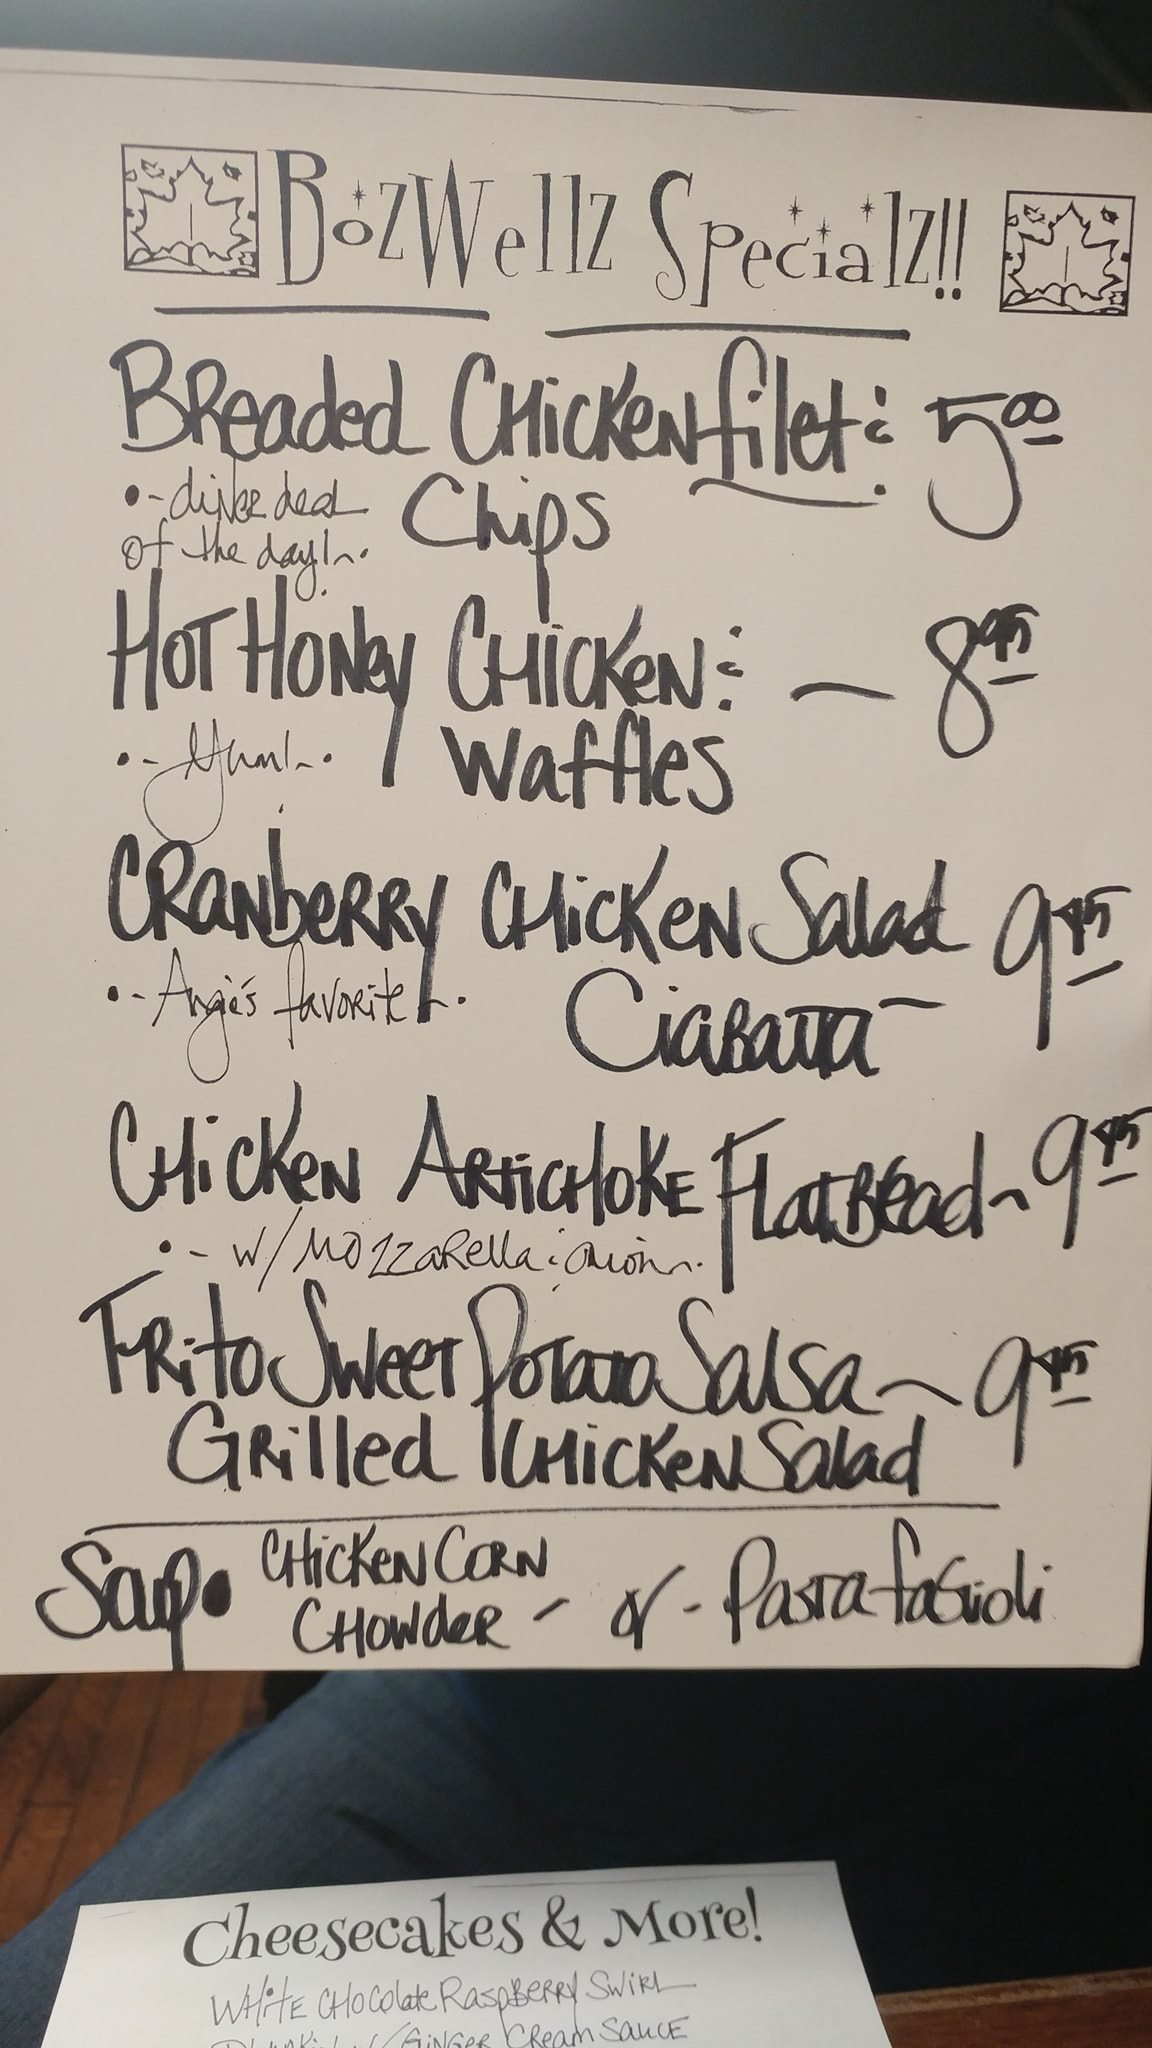 BozWellz Specialz!!
Breaded Chicken filet : 5.00
•-diner deal Chips
of the day!~•
Hot Honey Chicken : — 8.95
•-Yum!~• Waffles
Cranberry Chicken Salad 9.45
•-Angie's favorite~• Ciabatta —
Chicken Artichoke Flatbread ~ 9.45
•-w/mozzarella : onion~•
Frito Sweet Potato Salsa ~ 9.45
Grilled Chicken Salad
Soup • Chicken Corn
Chowder - or - Pasta fagioli
Cheesecakes & More!
White Chocolate Raspberry Swirl
w/ Ginger Cream Sauce